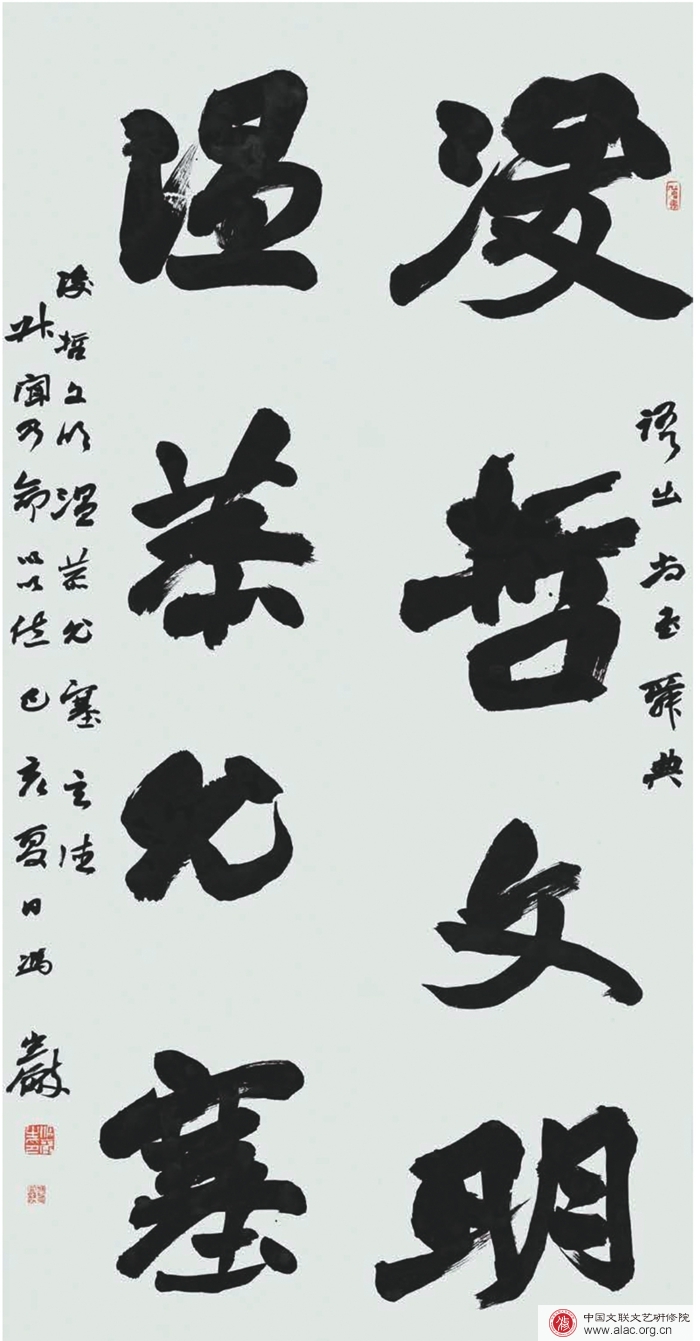 浚哲文明
语出尚书舜典
温恭允塞
浚哲文明温恭允塞玄德
升闻乃命以位己亥夏日冯
中国文联文艺研修院
www.alac.org.cn